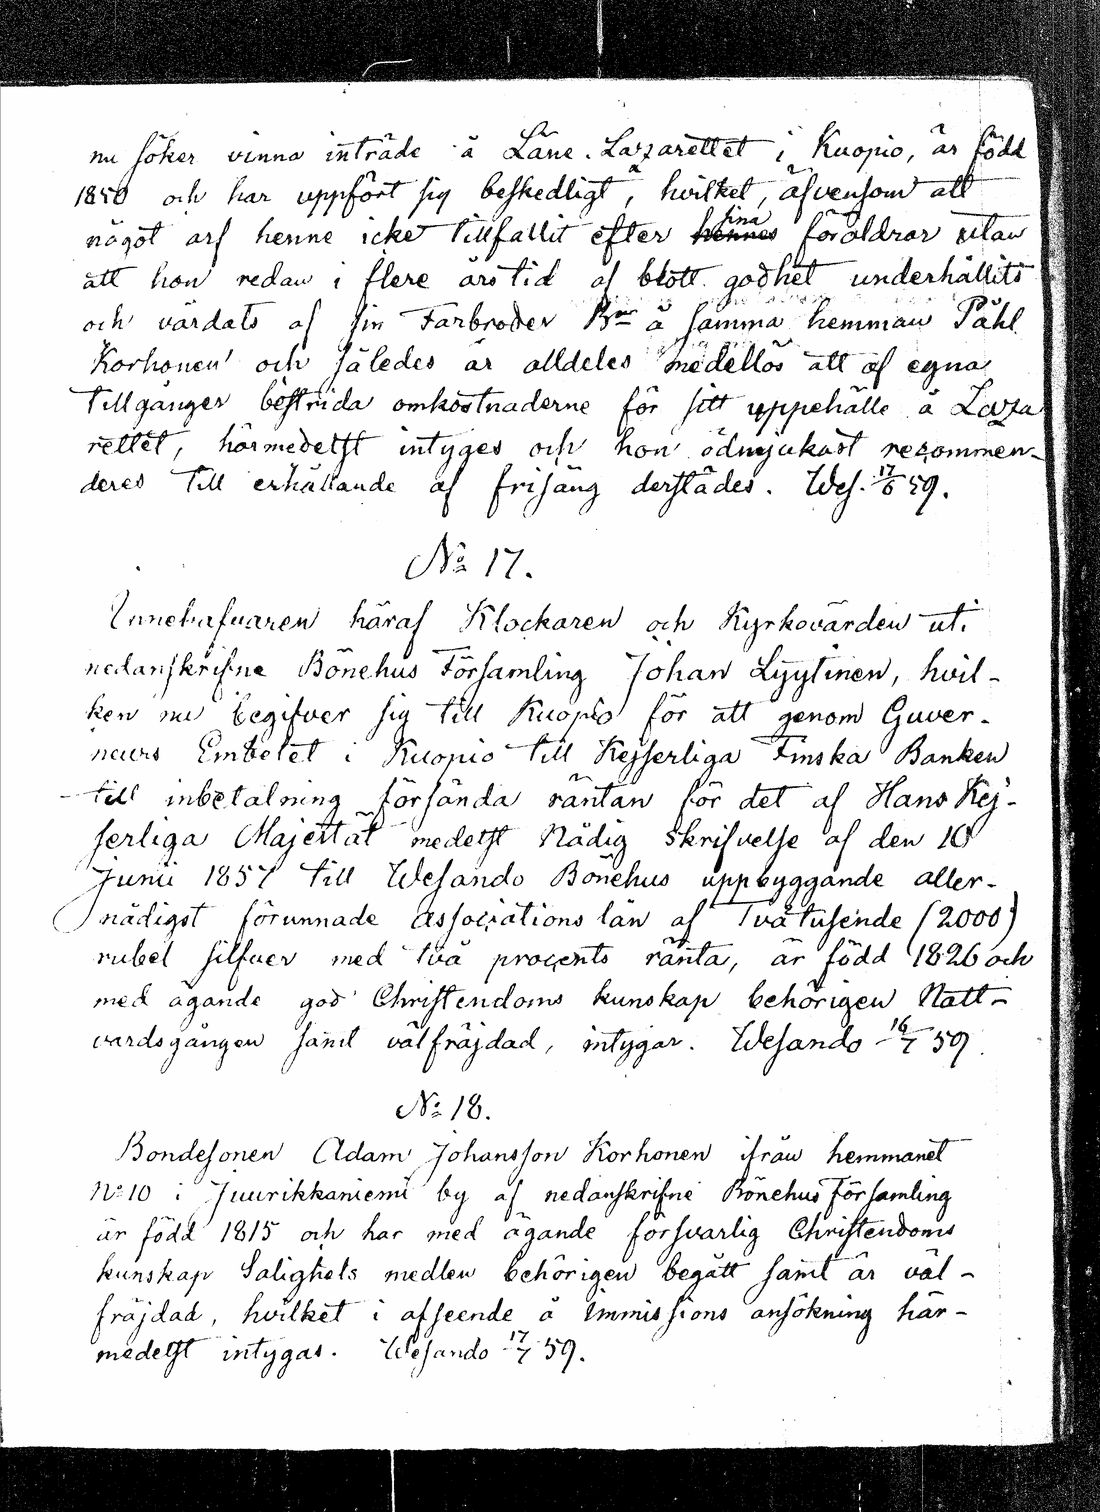 nu söker vinna inträde å Läne. Lazarettet i Kuopio, är född
1850 och har uppfört sig beskedligt, hvilket, äfvensom att
något arf henne icke tillfallit efter hennes sina föräldrar utan
att hon redan i flere års tid af blott godhet underhållits
och vårdats af sin Farbroder Bnr å samma hemman Påhl
Korhonen och således är alldeles medellös att af egna
tillgånger bestrida omkostnaderne för sitt uppehälle å Laza
rettet, härmedelst intyges och hon ödmjukast recommen-
deres till erhållande af frisäng derstädes. Wes. 17/6 59.
No 17.
Innehafvaren häraf Klockaren och Kyrkovärden uti
nedanskrifne Bönehus Församling Johan Lyytinen, hvil-
ken nu begifver sig till Kuopio för att genom Guver-
neurs Embetet i Kuopio till Kejserliga Finska Banken
till inbetalning försända räntan för det af Hans Kej-
serliga Majestät medelst Nådig skrifvelse af den 10
Junii 1857 till Wesando Bönehus uppbyggande aller-
nådigst förunnade associations lån af Tvåtusende (2000)
rubel silfver med två procents ränta, är född 1826 och
med ägande god Christendoms kunskap behörigen Natt-
vardsgången samt välfräjdad, intygar. Wesando 16/7 59.
No 18.
Bondesonen Adam Johansson Korhonen ifrån hemmanet
No 10 i Juurikkaniemi by af nedanskrifne Bönehus Församling
är född 1815 och har med ägande försvarlig Christendoms
kunskap Salighets medlen behörigen begått samt är väl-
fräjdad, hvilket i afseende å immissions ansökning här-
medelst intygas. Wesando 17/7 59.